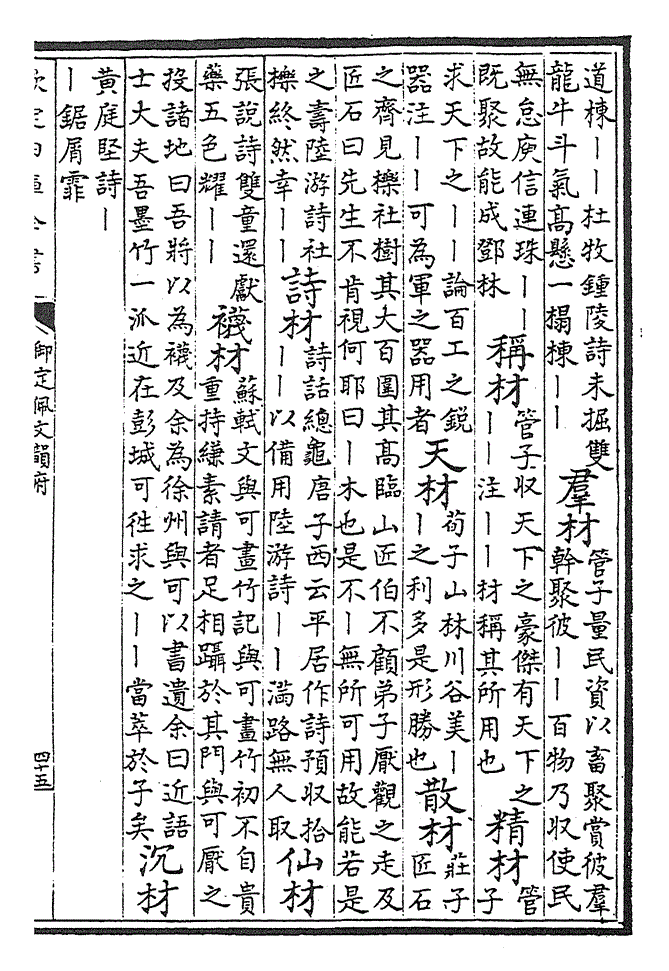 道棟丨丨杜牧鍾陵詩未掘雙
龍牛斗氣高懸一榻棟丨丨
羣材
管子量民資以畜聚賞彼羣
幹聚彼丨丨百物乃収使民
無怠庾信連珠丨丨
既聚故能成鄧林
稱材
管子収天下之豪傑有天下之
丨丨注丨丨材稱其所用也
精材
管
子
求天下之丨丨論百工之鋭
器注丨丨可為軍之器用者
天材
荀子山林川谷美丨
丨之利多是形勝也
散材
莊子
匠石
之齊見櫟社樹其大百圍其高臨山匠伯不顧弟子厭觀之走及
匠石曰先生不肯視何耶曰丨木也是不丨無所可用故能若是
之壽陸游詩社
櫟終然幸丨丨
詩材
詩話總龜唐子西云平居作詩預収拾
丨丨以備用陸游詩丨丨滿路無人取
仙材
張說詩雙童還獻
藥五色耀丨丨
襪材
蘇軾文與可畫竹記與可畫竹初不自貴
重持縑素請者足相躡於其門與可厭之
投諸地曰吾將以為襪及余為徐州與可以書遺余曰近語
士大夫吾墨竹一派近在彭城可徃求之丨丨當萃於子矣
沉材
黄庭堅詩丨
丨鋸屑霏
欽定四庫全書
御定佩文韻府
四十五